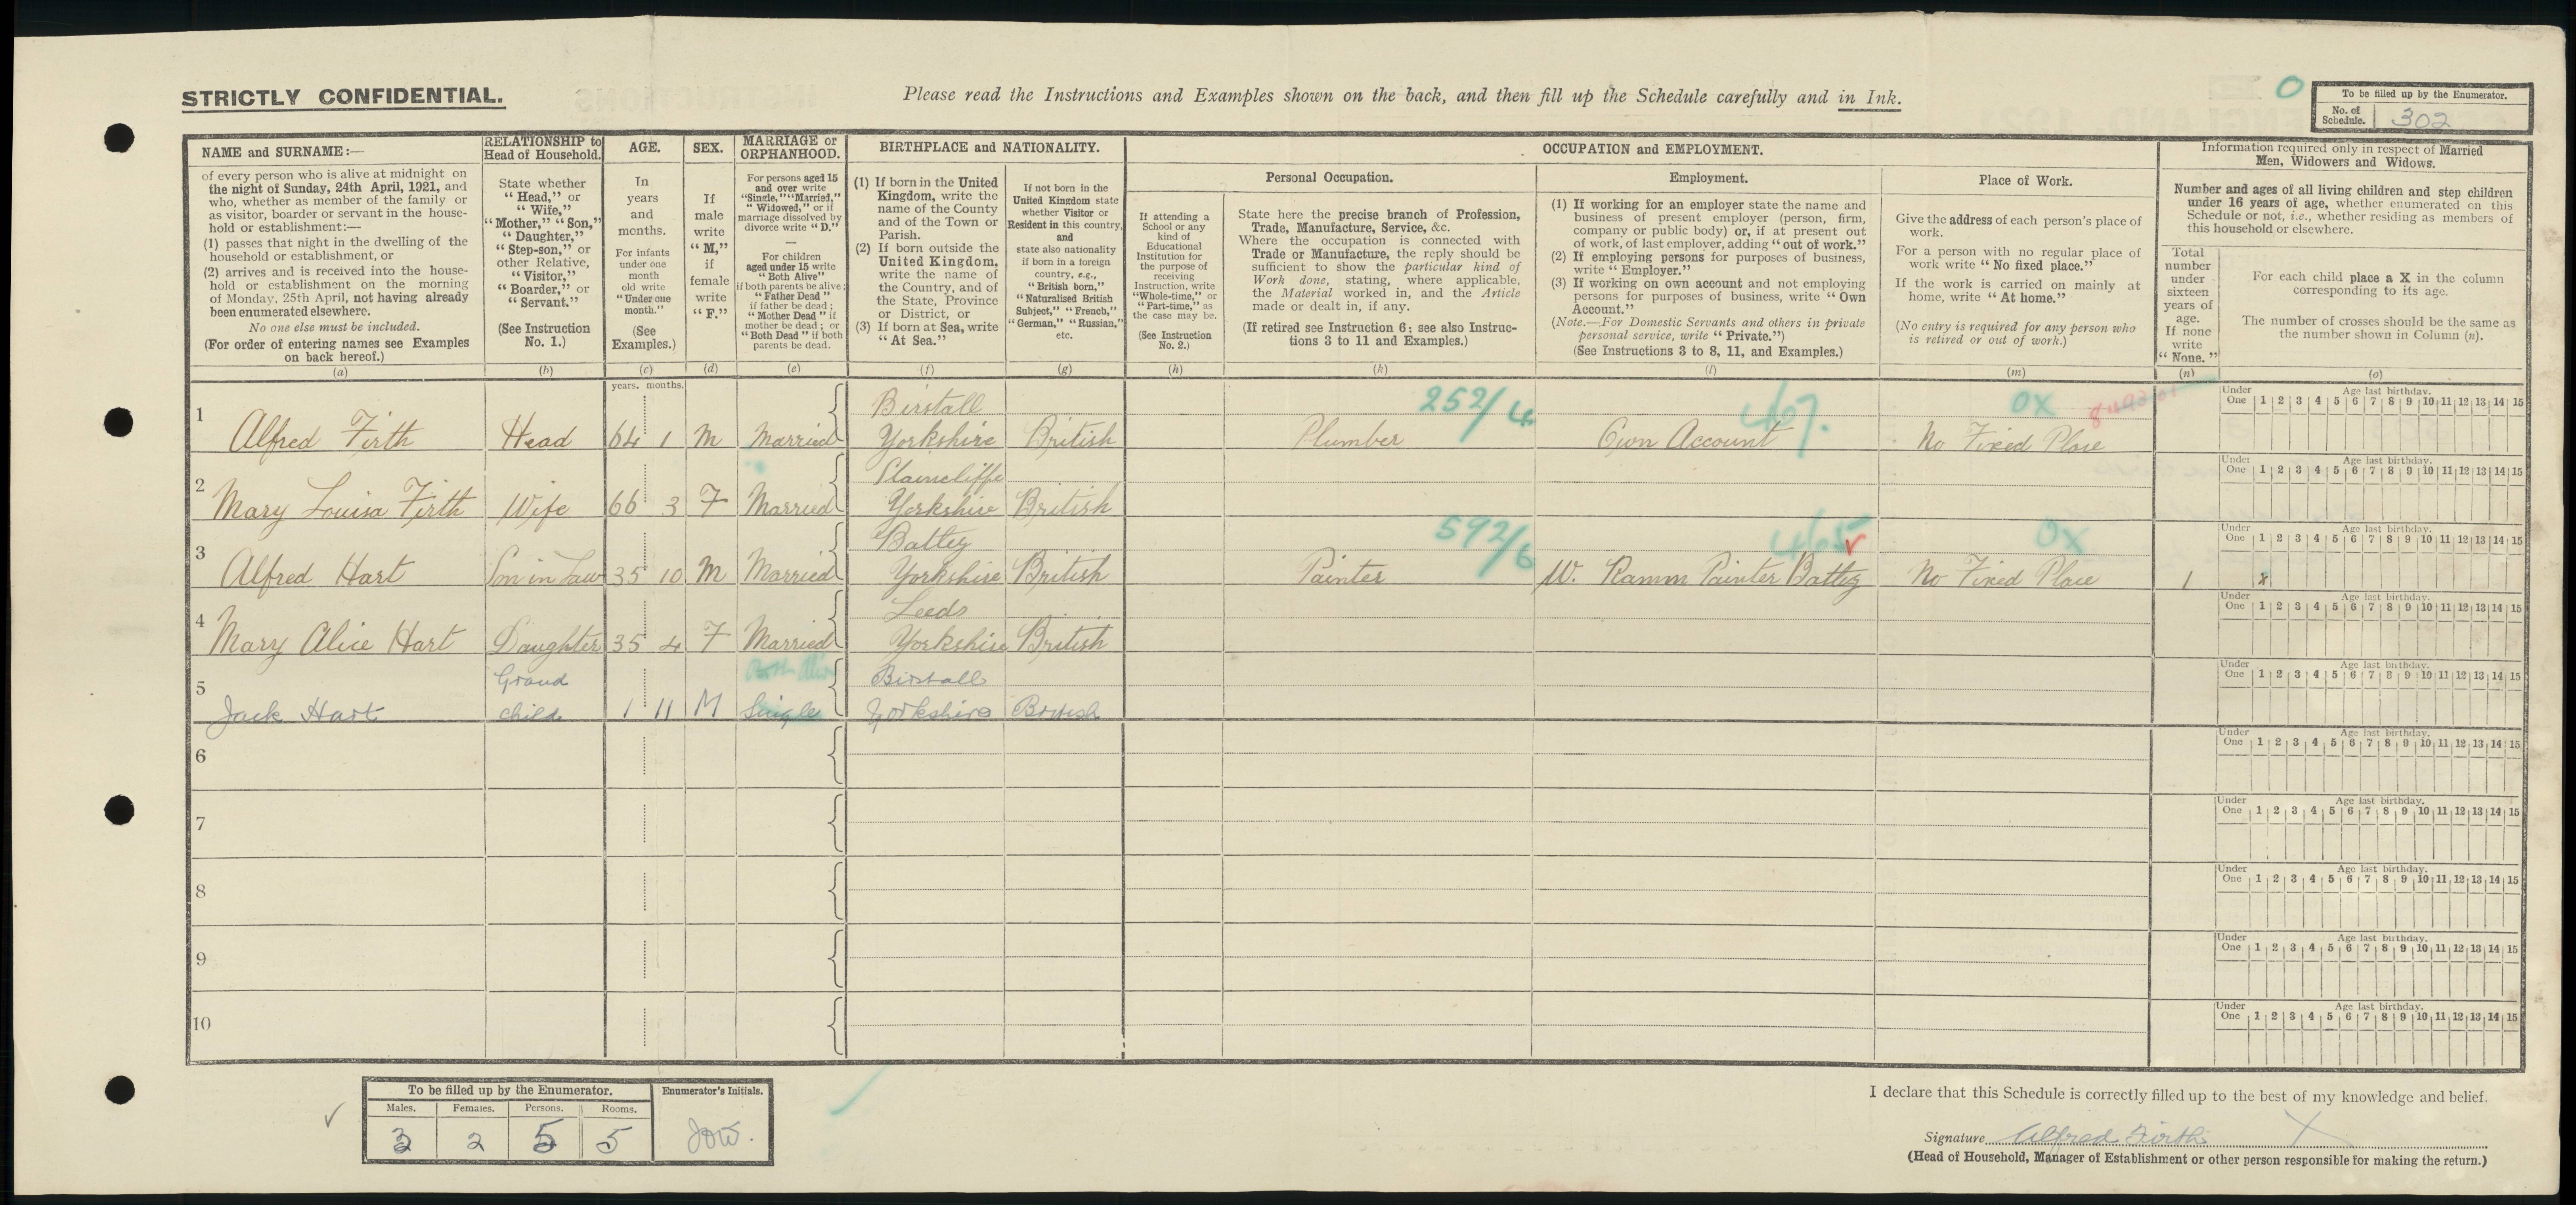 STRICTLY CONFIDENTIAL.
Please read the Instructions and Examples shown on the back, and then fill up the Schedule carefully and in Ink.
0
To be filled up by the Enumerator.
No. of Schedule. 302
NAME and SURNAME:—
of every person who is alive at midnight on
the night of Sunday, 24th April, 1921, and
who, whether as member of the family or
as visitor, boarder or servant in the house-
hold or establishment:—
(1) passes that night in the dwelling of the
household or establishment, or
(2) arrives and is received into the house-
hold or establishment on the morning
of Monday, 25th April, not having already
been enumerated elsewhere.
No one else must be included.
(For order of entering names see Examples
on back hereof.)
(a)
RELATIONSHIP to
Head of Household.
State whether
"Head," or
"Wife,"
"Mother," "Son,"
"Daughter,"
"Step-son," or
other Relative,
"Visitor,"
"Boarder," or
"Servant."
(See Instruction
No. 1.)
(b)
AGE.
In
years
and
months.
For infants
under one
month
old write
"Under one
month."
(See
Examples.)
(c)
SEX.
If
male
write
"M,"
if
female
write
"F."
(d)
MARRIAGE or
ORPHANHOOD.
For persons aged 15
and over write
"Single," "Married,"
"Widowed," or if
marriage dissolved by
divorce write "D."
—
For children
aged under 15 write
"Both Alive"
if both parents be alive;
"Father Dead"
if father be dead;
"Mother Dead" if
mother be dead; or
"Both Dead" if both
parents be dead.
(e)
BIRTHPLACE and NATIONALITY.
(1) If born in the United
Kingdom, write the
name of the County
and of the Town or
Parish.
(2) If born outside the
United Kingdom,
write the name of
the Country, and of
the State, Province
or District, or
(3) If born at Sea, write
"At Sea."
(f)
If not born in the
United Kingdom state
whether Visitor or
Resident in this country,
and
state also nationality
if born in a foreign
country, e.g.,
"British born,"
"Naturalised British
Subject," "French,"
"German," "Russian,"
etc.
(g)
OCCUPATION and EMPLOYMENT.
Personal Occupation.
If attending a
School or any
kind of
Educational
Institution for
the purpose of
receiving
Instruction, write
"Whole-time," or
"Part-time," as
the case may be.
(See Instruction
No. 2.)
(h)
State here the precise branch of Profession,
Trade, Manufacture, Service, &c.
Where the occupation is connected with
Trade or Manufacture, the reply should be
sufficient to show the particular kind of
Work done, stating, where applicable,
the Material worked in, and the Article
made or dealt in, if any.
(If retired see Instruction 6; see also Instruc-
tions 3 to 11 and Examples.)
(k)
Employment.
(1) If working for an employer state the name and
business of present employer (person, firm,
company or public body) or, if at present out
of work, of last employer, adding "out of work."
(2) If employing persons for purposes of business,
write "Employer."
(3) If working on own account and not employing
persons for purposes of business, write "Own
Account."
(Note.—For Domestic Servants and others in private
personal service, write "Private.")
(See Instructions 3 to 8, 11, and Examples.)
(l)
Place of Work.
Give the address of each person's place of
work.
For a person with no regular place of
work write "No fixed place."
If the work is carried on mainly at
home, write "At home."
(No entry is required for any person who
is retired or out of work.)
(m)
Information required only in respect of Married
Men, Widowers and Widows.
Number and ages of all living children and step children
under 16 years of age, whether enumerated on this
Schedule or not, i.e., whether residing as members of
this household or elsewhere.
Total
number
under
sixteen
years of
age.
If none
write
"None."
(n)
For each child place a X in the column
corresponding to its age.
The number of crosses should be the same as
the number shown in Column (n).
(o)
years. months.
1 Alfred Firth Head 64 1 M Married Birstall Yorkshire British Plumber 252/4 Own Account 467. No Fixed Place OX
Under One Age last birthday. 1 2 3 4 5 6 7 8 9 10 11 12 13 14 15
2 Mary Louisa Firth Wife 66 3 F Married Staincliffe Yorkshire British
Under One Age last birthday. 1 2 3 4 5 6 7 8 9 10 11 12 13 14 15
3 Alfred Hart Son in Law 35 10 M Married Batley Yorkshire British Painter 592/6 W. Ramm Painter Batley 465 No Fixed Place OX 1 x
Under One Age last birthday. 1 2 3 4 5 6 7 8 9 10 11 12 13 14 15
4 Mary Alice Hart Daughter 35 4 F Married Leeds Yorkshire British
Under One Age last birthday. 1 2 3 4 5 6 7 8 9 10 11 12 13 14 15
5 Jack Hart Grand child 1 11 M Both Alive Single Birstall Yorkshire British
Under One Age last birthday. 1 2 3 4 5 6 7 8 9 10 11 12 13 14 15
6
Under One Age last birthday. 1 2 3 4 5 6 7 8 9 10 11 12 13 14 15
7
Under One Age last birthday. 1 2 3 4 5 6 7 8 9 10 11 12 13 14 15
8
Under One Age last birthday. 1 2 3 4 5 6 7 8 9 10 11 12 13 14 15
9
Under One Age last birthday. 1 2 3 4 5 6 7 8 9 10 11 12 13 14 15
10
Under One Age last birthday. 1 2 3 4 5 6 7 8 9 10 11 12 13 14 15
To be filled up by the Enumerator.
Males. Females. Persons. Rooms.
3 2 5 5
Enumerator's Initials.
JOW.
I declare that this Schedule is correctly filled up to the best of my knowledge and belief.
Signature Alfred Firth X
(Head of Household, Manager of Establishment or other person responsible for making the return.)